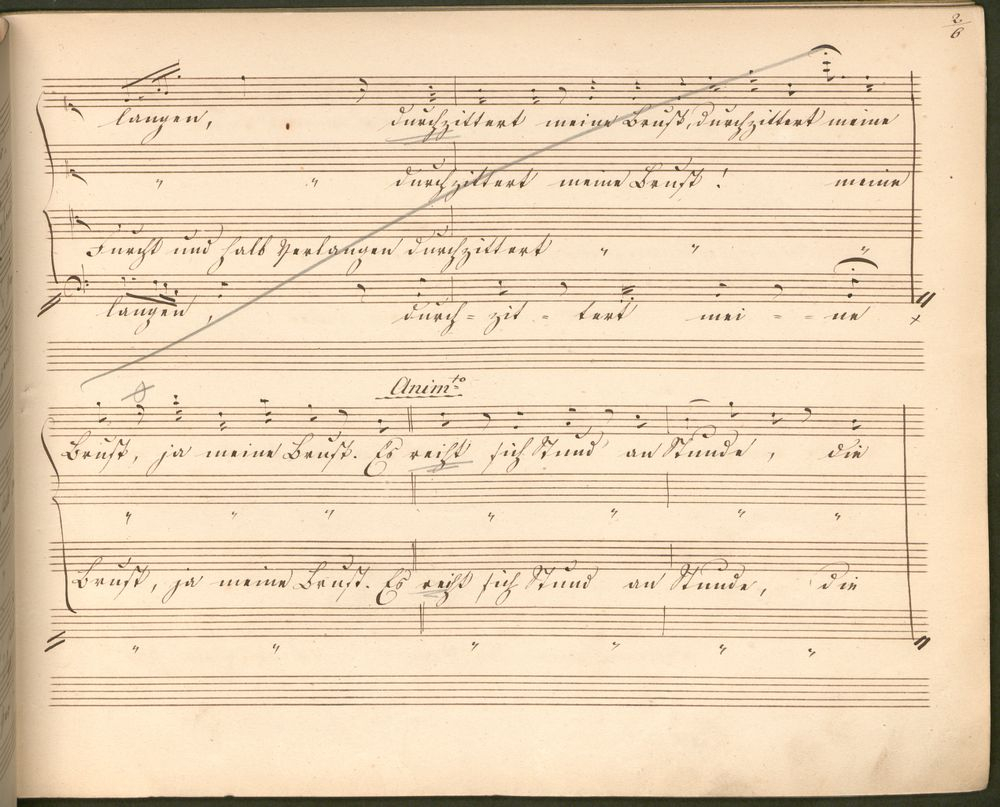 2/6
langen, durchzittert meine Brust, durchzittert meine
" " durchzittert meine Brust! meine
Furcht und halb Verlangen durchzittert " " "
langen, durch=zit=tert mei==ne
Animto
Brust, ja meine Brust. Es reiht sich Stund an Stunde, die
" " " " " " "
Brust, ja meine Brust. Es reiht sich Stund an Stunde, die
" " " " " "